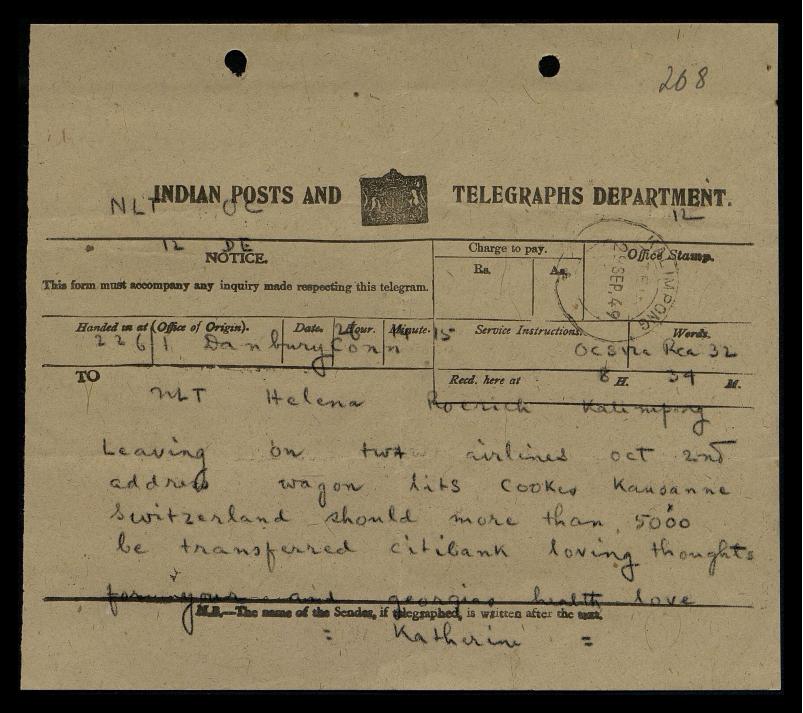 268
INDIAN POSTS AND TELEGRAPHS DEPARTMENT.
NLT OC 12
12 DE
NOTICE.
This form must accompany any inquiry made respecting this telegram.
Charge to pay.
Rs. As.
Office Stamp.
KALIMPONG
SEP. 49
Handed in at (Office of Origin). Date. Hour. Minute. Service Instructions. Words.
2261 Danbury Conn 15 Rca 32
Recd. here at 8 H. 34 M.
TO
NLT Helena Roerich Kalimpong
Leaving on twa airlines oct 2nd
address wagon lits cookes Kausanne
Switzerland should more than 5000
be transferred citibank loving thoughts
for your and georgias health love
N.B.—The name of the Sender, if telegraphed, is written after the text.
= Katherine =